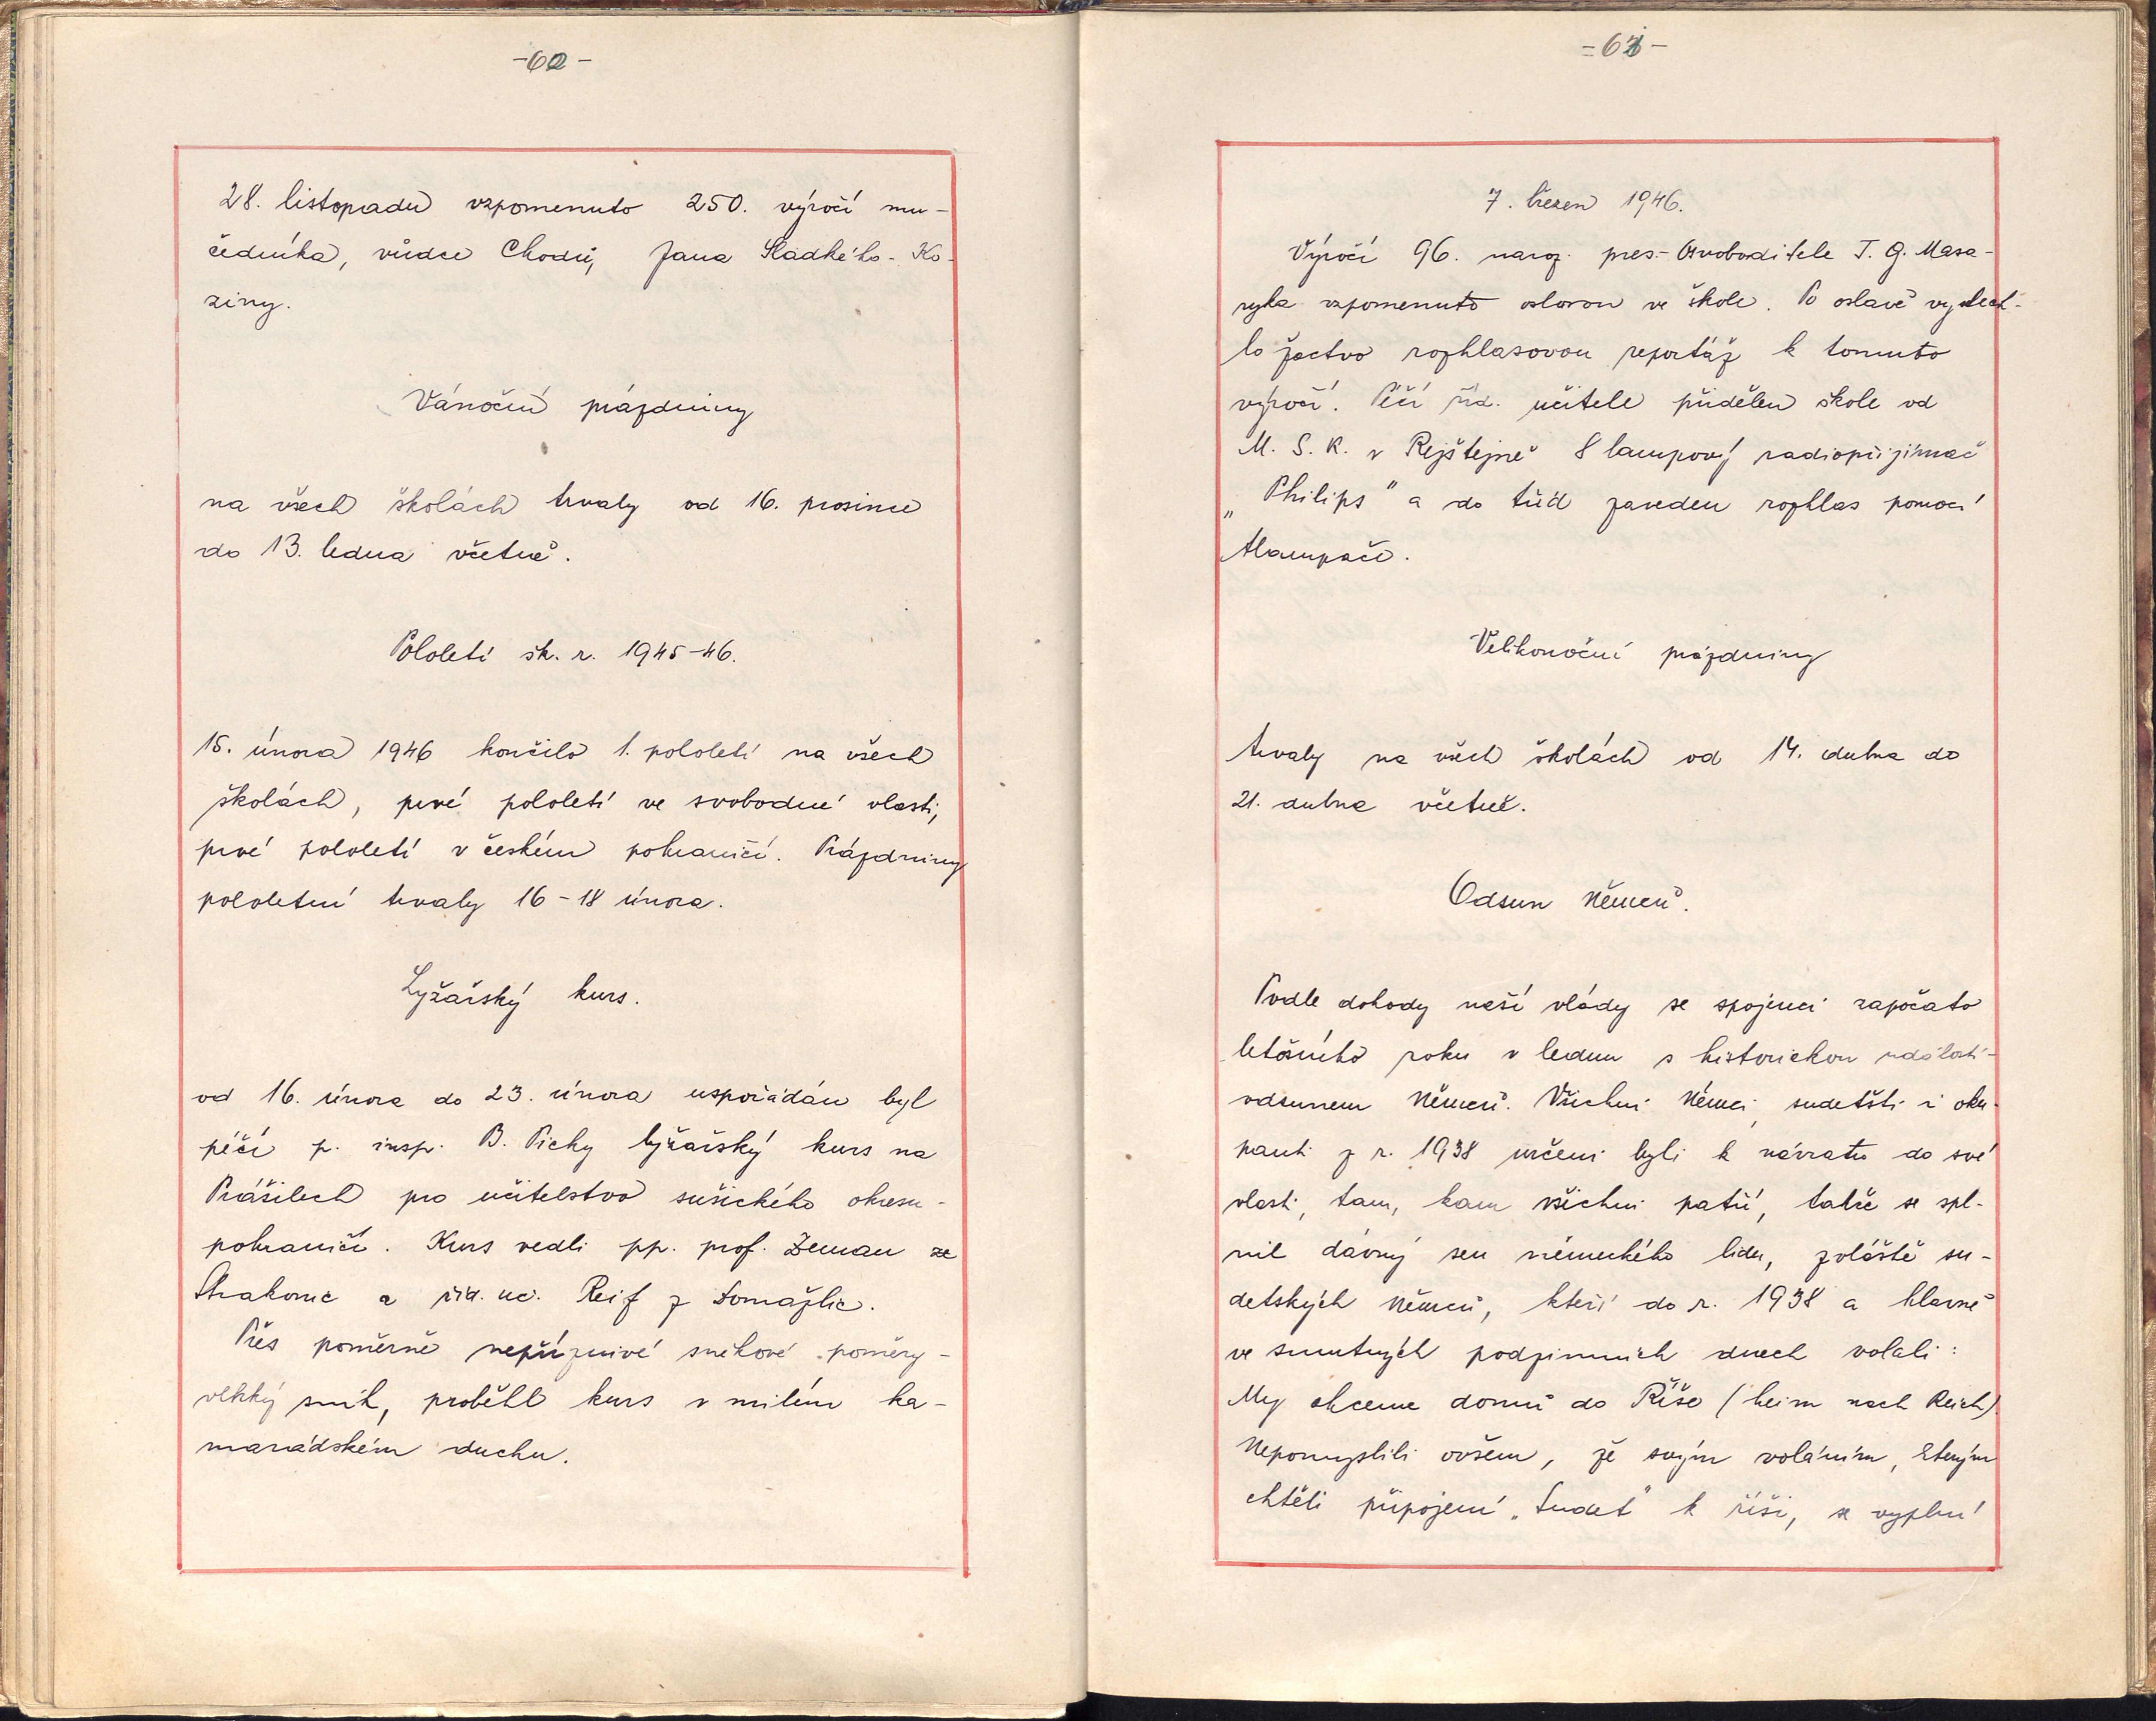 -62-
28. listopadu vzpomenuto 250. výročí mu-
čedníka, vůdce Chodů, Jana Sladkého - Ko-
ziny.
Vánoční prázdniny
na všech školách trvaly od 16. prosince
do 13. ledna včetně.
Pololetí šk. r. 1945-46.
15. února 1946 končilo 1. pololetí na všech
školách, prvé pololetí ve svobodné vlasti,
prvé pololetí v českém pohraničí. Prázdniny
pololetní trvaly 16-18 února.
Lyžařský kurs.
od 16. února do 23. února uspořádán byl
péčí p. insp. B. Pichy lyžařský kurs na
Prášilech pro učitelstvo sušického okresu -
pohraničí. Kurs vedli pp. prof. Zeman ze
Strakonic a říd. uč. Reif z Domažlic.
Přes poměrně nepříznivé sněhové poměry -
vlhký sníh, proběhl kurs v milém ka-
marádském duchu.
-63-
7. březen 1946.
Výročí 96. naroz. pres.- Osvoboditele T. G. Masa-
ryka vzpomenuto oslavou ve škole. Po oslavě vyslech-
lo žactvo rozhlasovou reportáž k tomuto
výročí. Péčí říd. učitele přidělen škole od
M. S. K. v Rejštejně 8 lampový radiopřijímač
„Philips" a do tříd zaveden rozhlas pomocí
tlampače.
Velikonoční prázdniny
trvaly na všech školách od 14. dubna do
21. dubna včetně.
Odsun Němců.
Podle dohody naší vlády se spojenci započato
letošního roku v lednu s historickou událostí -
odsunem Němců. Všichni Němci, sudetští i oku-
panti z r. 1938 určeni byli k návratu do své
vlasti, tam, kam všichni patří, takže se spl-
nil dávný sen německého lidu, zvláště su-
detských Němců, kteří do r. 1938 a hlavně
ve smutných podzimních dnech volali:
My chceme domů do Říše (heim nach Reich).
Nepomyslili ovšem, že svým voláním, kterým
chtěli připojení „Sudet" k říši, se vyplní